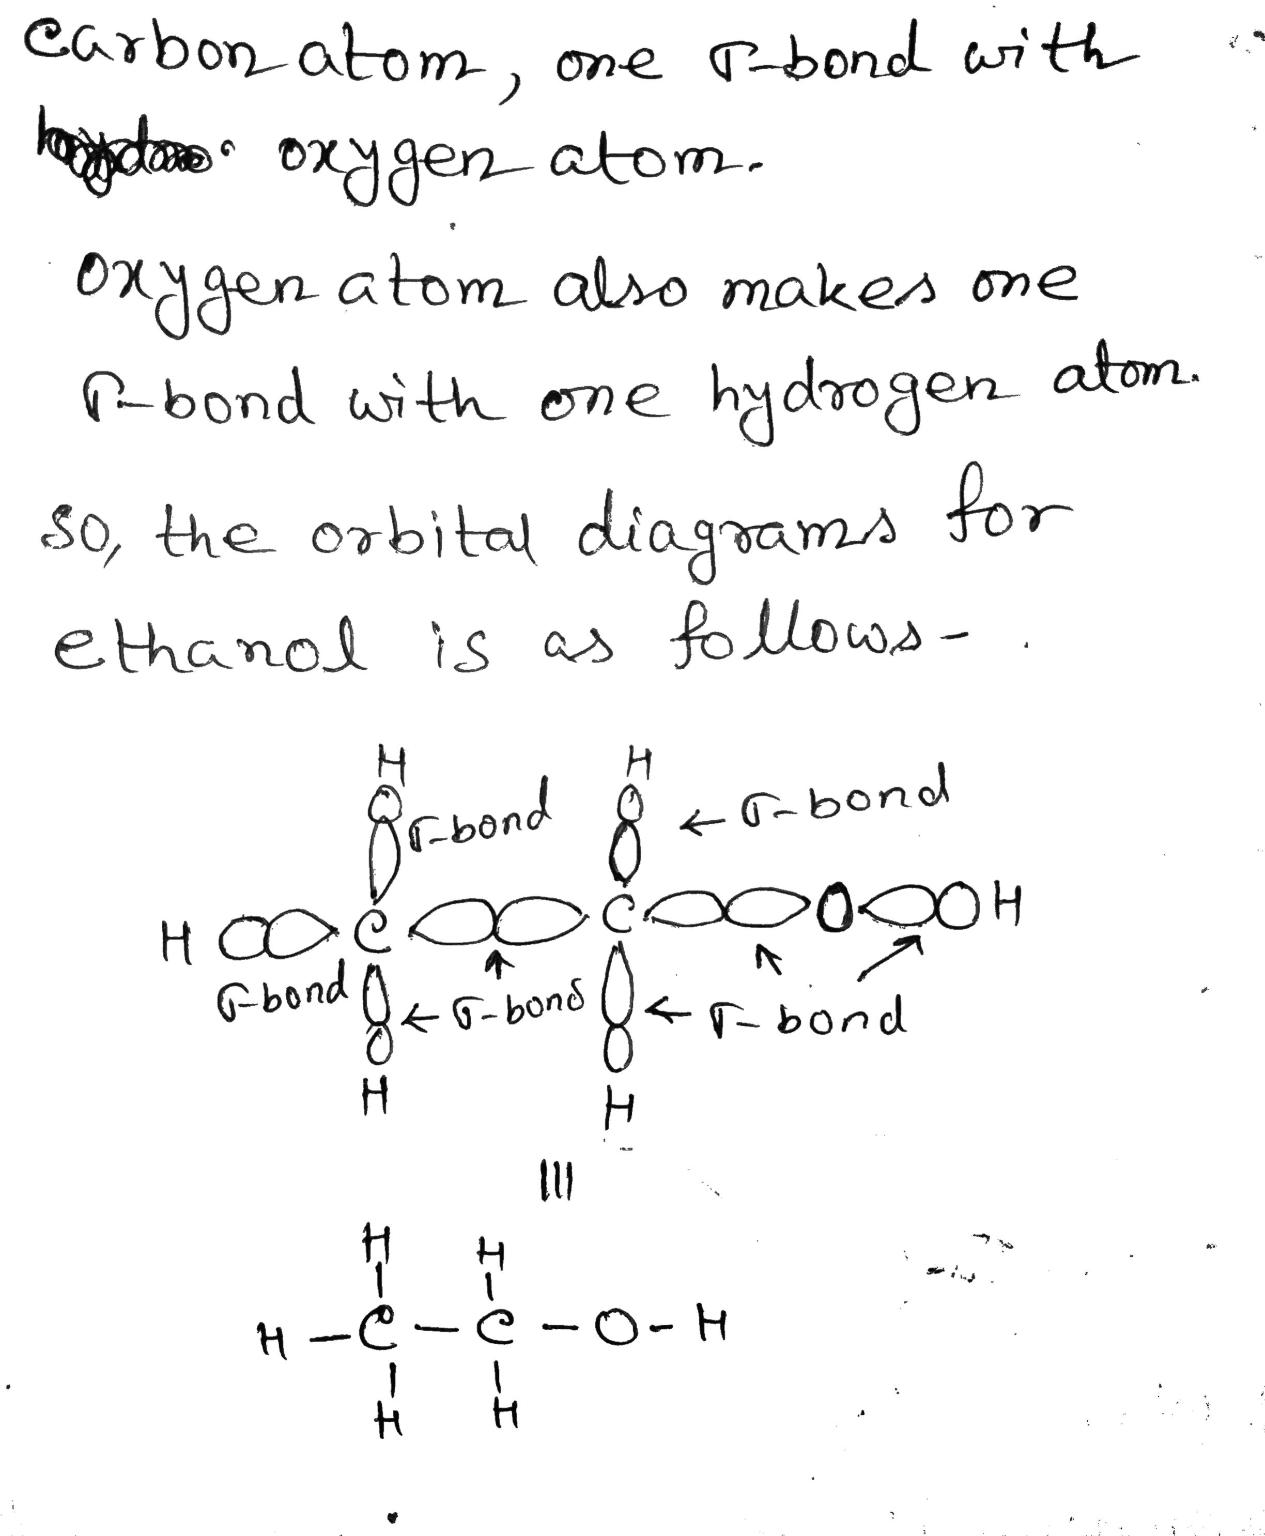 carbon atom, one σ-bond with
oxygen atom.
oxygen atom also makes one
σ-bond with one hydrogen atom.
So, the orbital diagrams for
ethanol is as follows-
H H
σ-bond ← σ-bond
H C C O H
σ-bond ← σ-bond ← σ-bond
H H
|||
H H
H - C - C - O - H
H H